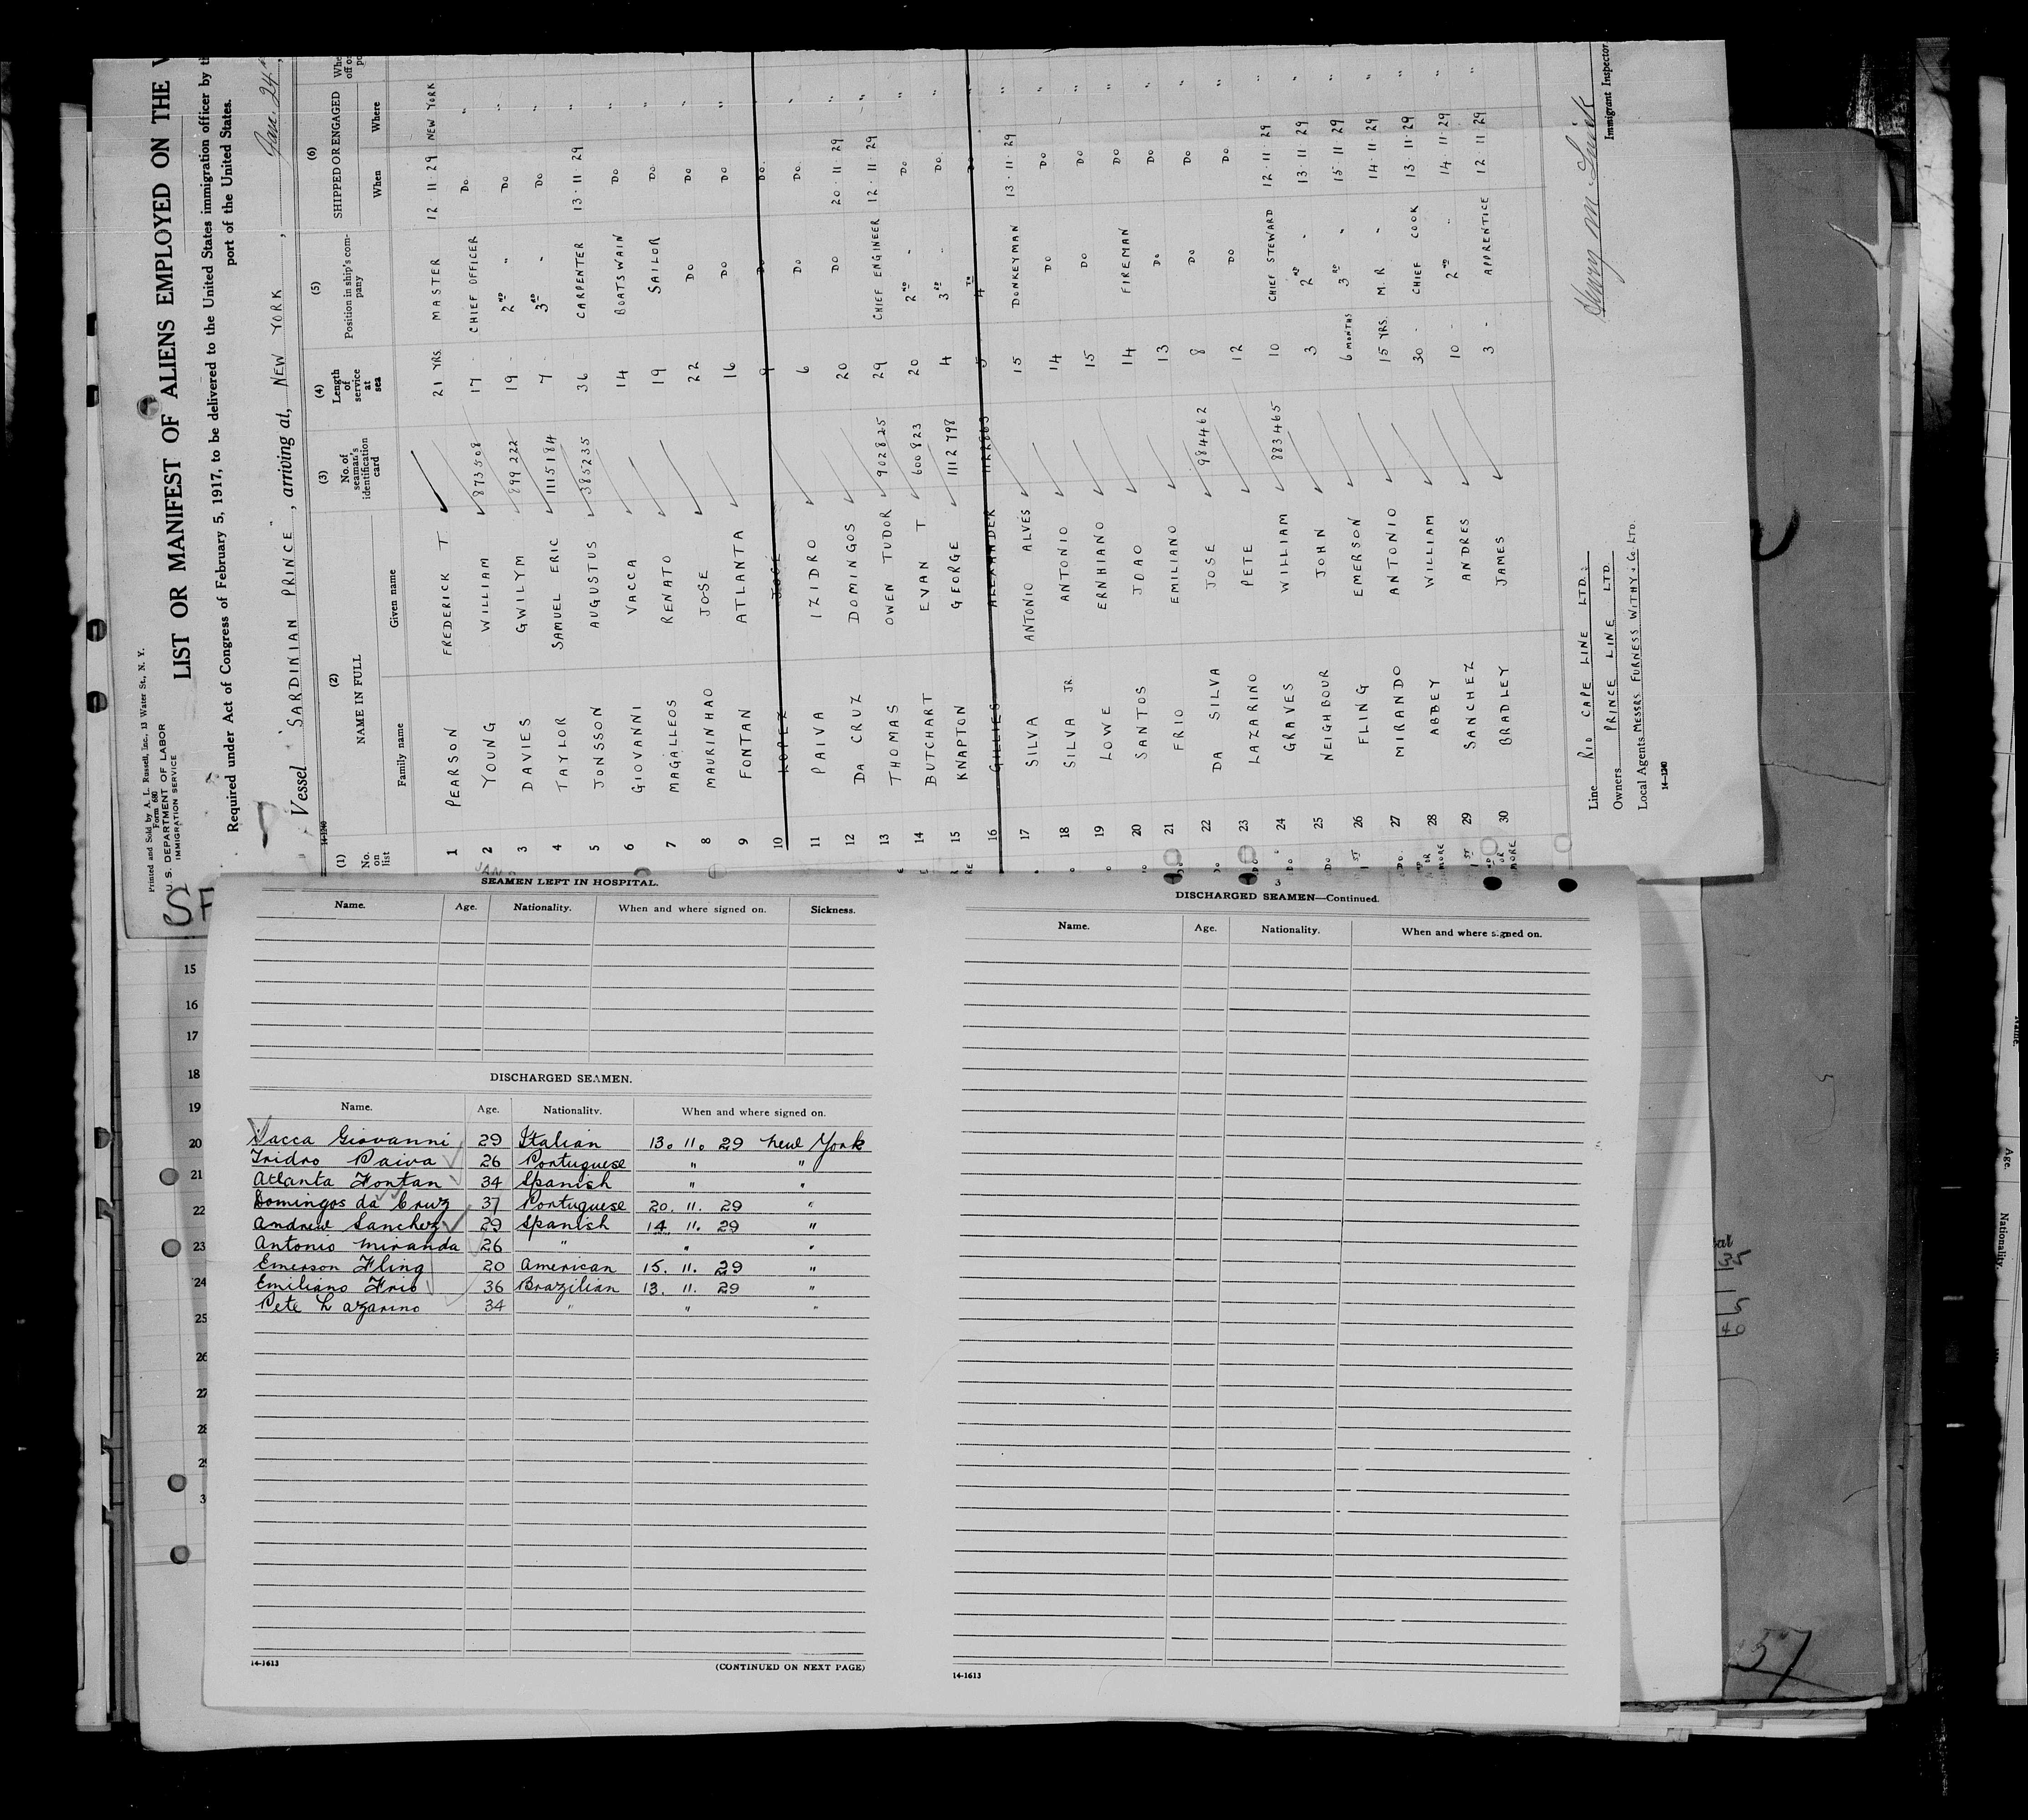 Printed and Sold by A. L. Russell, Inc., 13 Water St., N. Y.
Form 680
U. S. DEPARTMENT OF LABOR
IMMIGRATION SERVICE
LIST OR MANIFEST OF ALIENS EMPLOYED ON THE
Required under Act of Congress of February 5, 1917, to be delivered to the United States immigration officer by
port of the United States.
Vessel "SARDINIAN PRINCE", arriving at, NEW YORK, Jan. 24th
14-1240
(1) No. on list (2) NAME IN FULL Family name Given name (3) No. of seaman's identification card (4) Length of service at sea (5) Position in ship's company (6) SHIPPED OR ENGAGED When Where
1 PEARSON FREDERICK T 21 YRS. MASTER 12.11.29 NEW YORK
2 YOUNG WILLIAM 873508 17 - CHIEF OFFICER DO "
3 DAVIES GWILYM 899222 19 - 2ND " DO "
4 TAYLOR SAMUEL ERIC 1115184 7 - 3RD " DO "
5 JONSSON AUGUSTUS 385235 36 CARPENTER 13.11.29 "
6 GIOVANNI VACCA 14 BOATSWAIN DO "
7 MAGALLEOS RENATO 19 SAILOR DO "
8 MAURINHAO JOSE 22 DO DO "
9 FONTAN ATLANTA 16 DO DO "
10 LOPEZ JOSE 9 DO DO.
11 PAIVA IZIDRO 6 DO DO. "
12 DA CRUZ DOMINGOS 20 DO 20.11.29 "
13 THOMAS OWEN TUDOR 902825 29 CHIEF ENGINEER 12.11.29 "
14 BUTCHART EVAN T 600823 20 2ND " DO "
15 KNAPTON GEORGE 1112798 4 3RD " DO. "
16 GILLIES ALEXANDER 5 4TH DO "
17 SILVA ANTONIO ALVES 15 DONKEYMAN 13.11.29 "
18 SILVA JR. ANTONIO 14 DO DO "
19 LOWE ERNHIANO 15 DO DO "
20 SANTOS JOAO 14 FIREMAN DO "
21 FRIO EMILIANO 13 DO DO "
22 DA SILVA JOSE 984462 8 DO DO "
23 LAZARINO PETE 12 DO DO "
24 GRAVES WILLIAM 883465 10 CHIEF STEWARD 12.11.29 "
25 NEIGHBOUR JOHN 3 2ND " 13.11.29 "
26 FLING EMERSON 6 MONTHS 3RD " 15.11.29 "
27 MIRANDO ANTONIO 15 YRS. M.R " 14.11.29 "
28 ABBEY WILLIAM 30 - CHIEF COOK 13.11.29 "
29 SANCHEZ ANDRES 10 - 2ND " 14.11.29 "
30 BRADLEY JAMES 3 - APPRENTICE 12.11.29 "
Line RIO CAPE LINE LTD.:
Owners PRINCE LINE LTD.
Local Agents MESSRS FURNESS WITHY & Co. LTD.
14-1240
Immigrant Inspector
SEAMEN LEFT IN HOSPITAL.
Name. Age. Nationality. When and where signed on. Sickness.
DISCHARGED SEAMEN.
Name. Age. Nationality. When and where signed on.
Vacca Giovanni 29 Italian 13. 11. 29 New York
Izidro Paiva 26 Portuguese " "
Atlanta Fontan 34 Spanish " "
Domingos da Cruz 37 Portuguese 20. 11. 29 "
Andrew Sanchez 29 Spanish 14. 11. 29 "
Antonio Miranda 26 " " "
Emerson Fling 20 American 15. 11. 29 "
Emiliano Frio 36 Brazilian 13. 11. 29 "
Pete Lazarino 34 " " "
14-1613
(CONTINUED ON NEXT PAGE)
DISCHARGED SEAMEN—Continued.
Name. Age. Nationality. When and where signed on.
14-1613
15
16
17
18
19
20
21
22
23
24
25
26
27
35
5
40
57
Age.
Nationality.